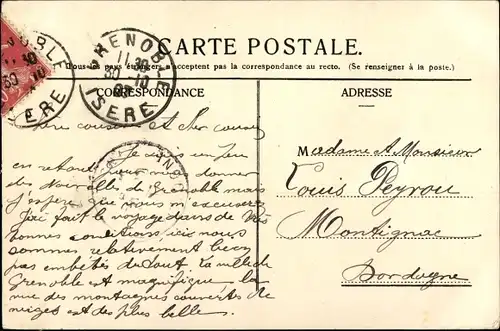 CARTE POSTALE.
Tous les pays étrangers n'acceptent pas la correspondance au recto. (Se renseigner à la poste.)
CORRESPONDANCE
ADRESSE
GRENOBLE
11 30
30 -10
ISERE
Chère cousine et cher cousin
Je suis un peu
en retard pour vous donner
des nouvelles de Grenoble mais
j'espère que vous m'excuserez
J'ai fait le voyage dans de très
bonnes conditions ici nous
sommes relativement bien
pas embêtés du tout La ville de
Grenoble est magnifique la
vue des montagnes couvertes de
neiges est des plus belle.
Madame et Monsieur
Louis Peyrou
Montignac
Dordogne